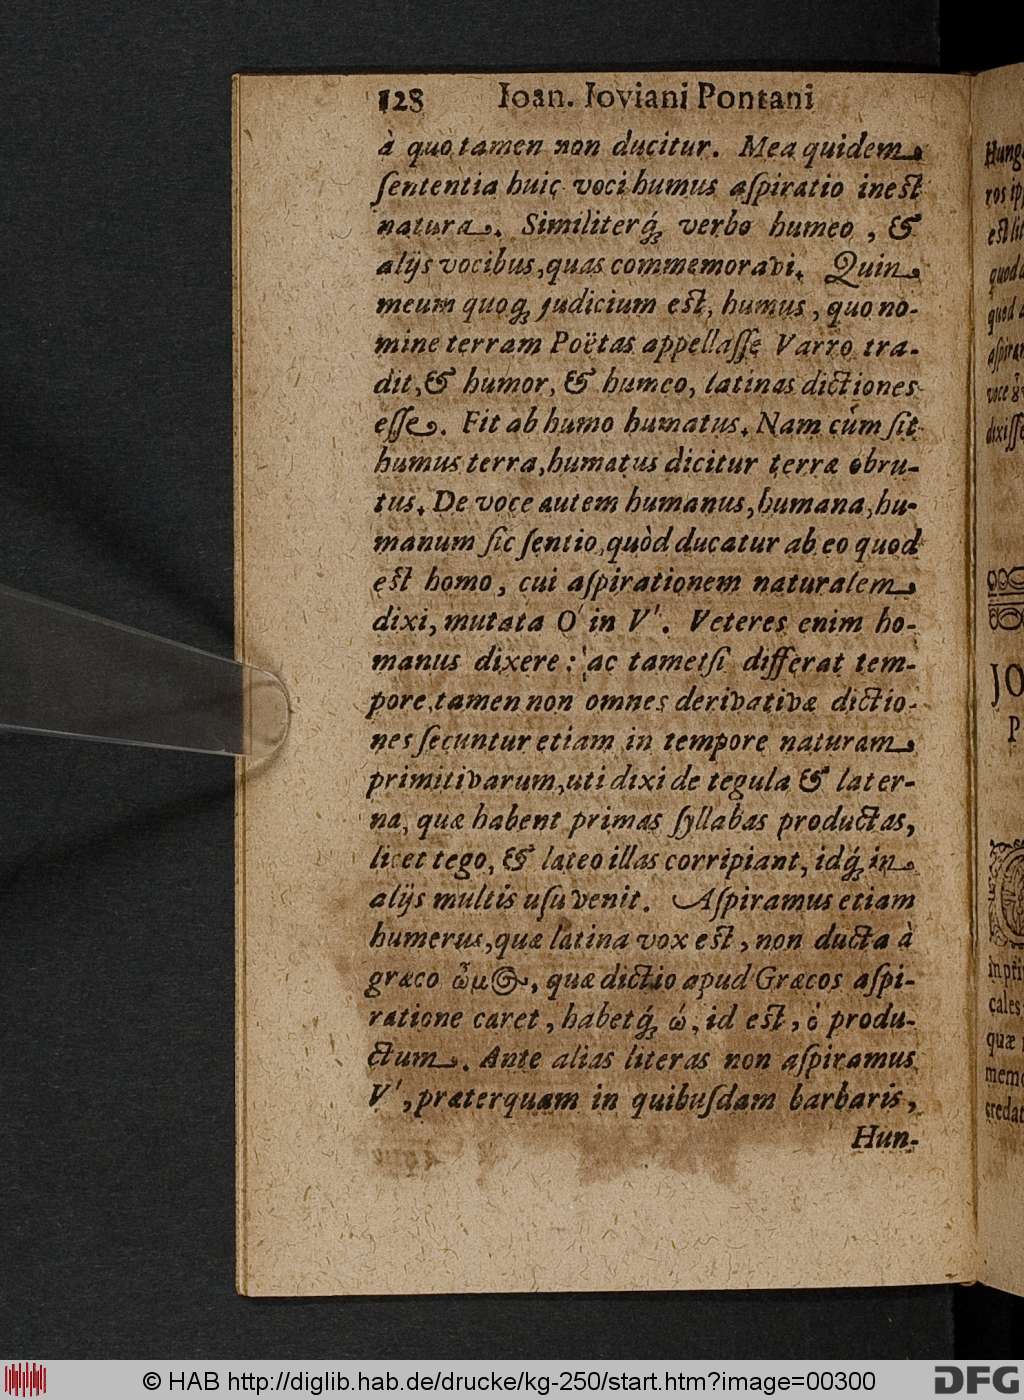 128 Ioan. Ioviani Pontani
à quo tamen non ducitur. Mea quidem
ſententia huic voci humus aſpiratio ineſt
natura. Similiterq́ꝫ verbo humeo, &
alijs vocibus, quas commemoravi. Quin
meum quoqꝫ judicium eſt, humus, quo no-
mine terram Poëtas appellaſſe Varro tra-
dit, & humor, & humeo, latinas dictiones
eſſe. Fit ab humo humatus. Nam cùm ſit
humus terra, humatus dicitur terræ obru-
tus. De voce autem humanus, humana, hu-
manum ſic ſentio, quòd ducatur ab eo quod
eſt homo, cui aſpirationem naturalem
dixi, mutata O in V'. Veteres enim ho-
manus dixere: ac tametſi differat tem-
pore, tamen non omnes derivativæ dictio-
nes ſecuntur etiam in tempore naturam
primitivarum, uti dixi de tegula & later-
na, quæ habent primas ſyllabas productas,
licet tego, & lateo illas corripiant, idq́ꝫ in
alijs multis uſu venit. Aſpiramus etiam
humerus, quæ latina vox eſt, non ducta à
græco ὦμος, quæ dictio apud Græcos aſpi-
ratione caret, habetq́ꝫ ώ, id eſt, ό produ-
ctum. Ante alias literas non aſpiramus
V', præterquam in quibuſdam barbaris,
Hun-
Hung
ros ip
eſt lit
quod
quod
aſpira
voce
dixiſſe
JO
P
in pri
cales
quæ
mem
credat
© HAB http://diglib.hab.de/drucke/kg-250/start.htm?image=00300
DFG